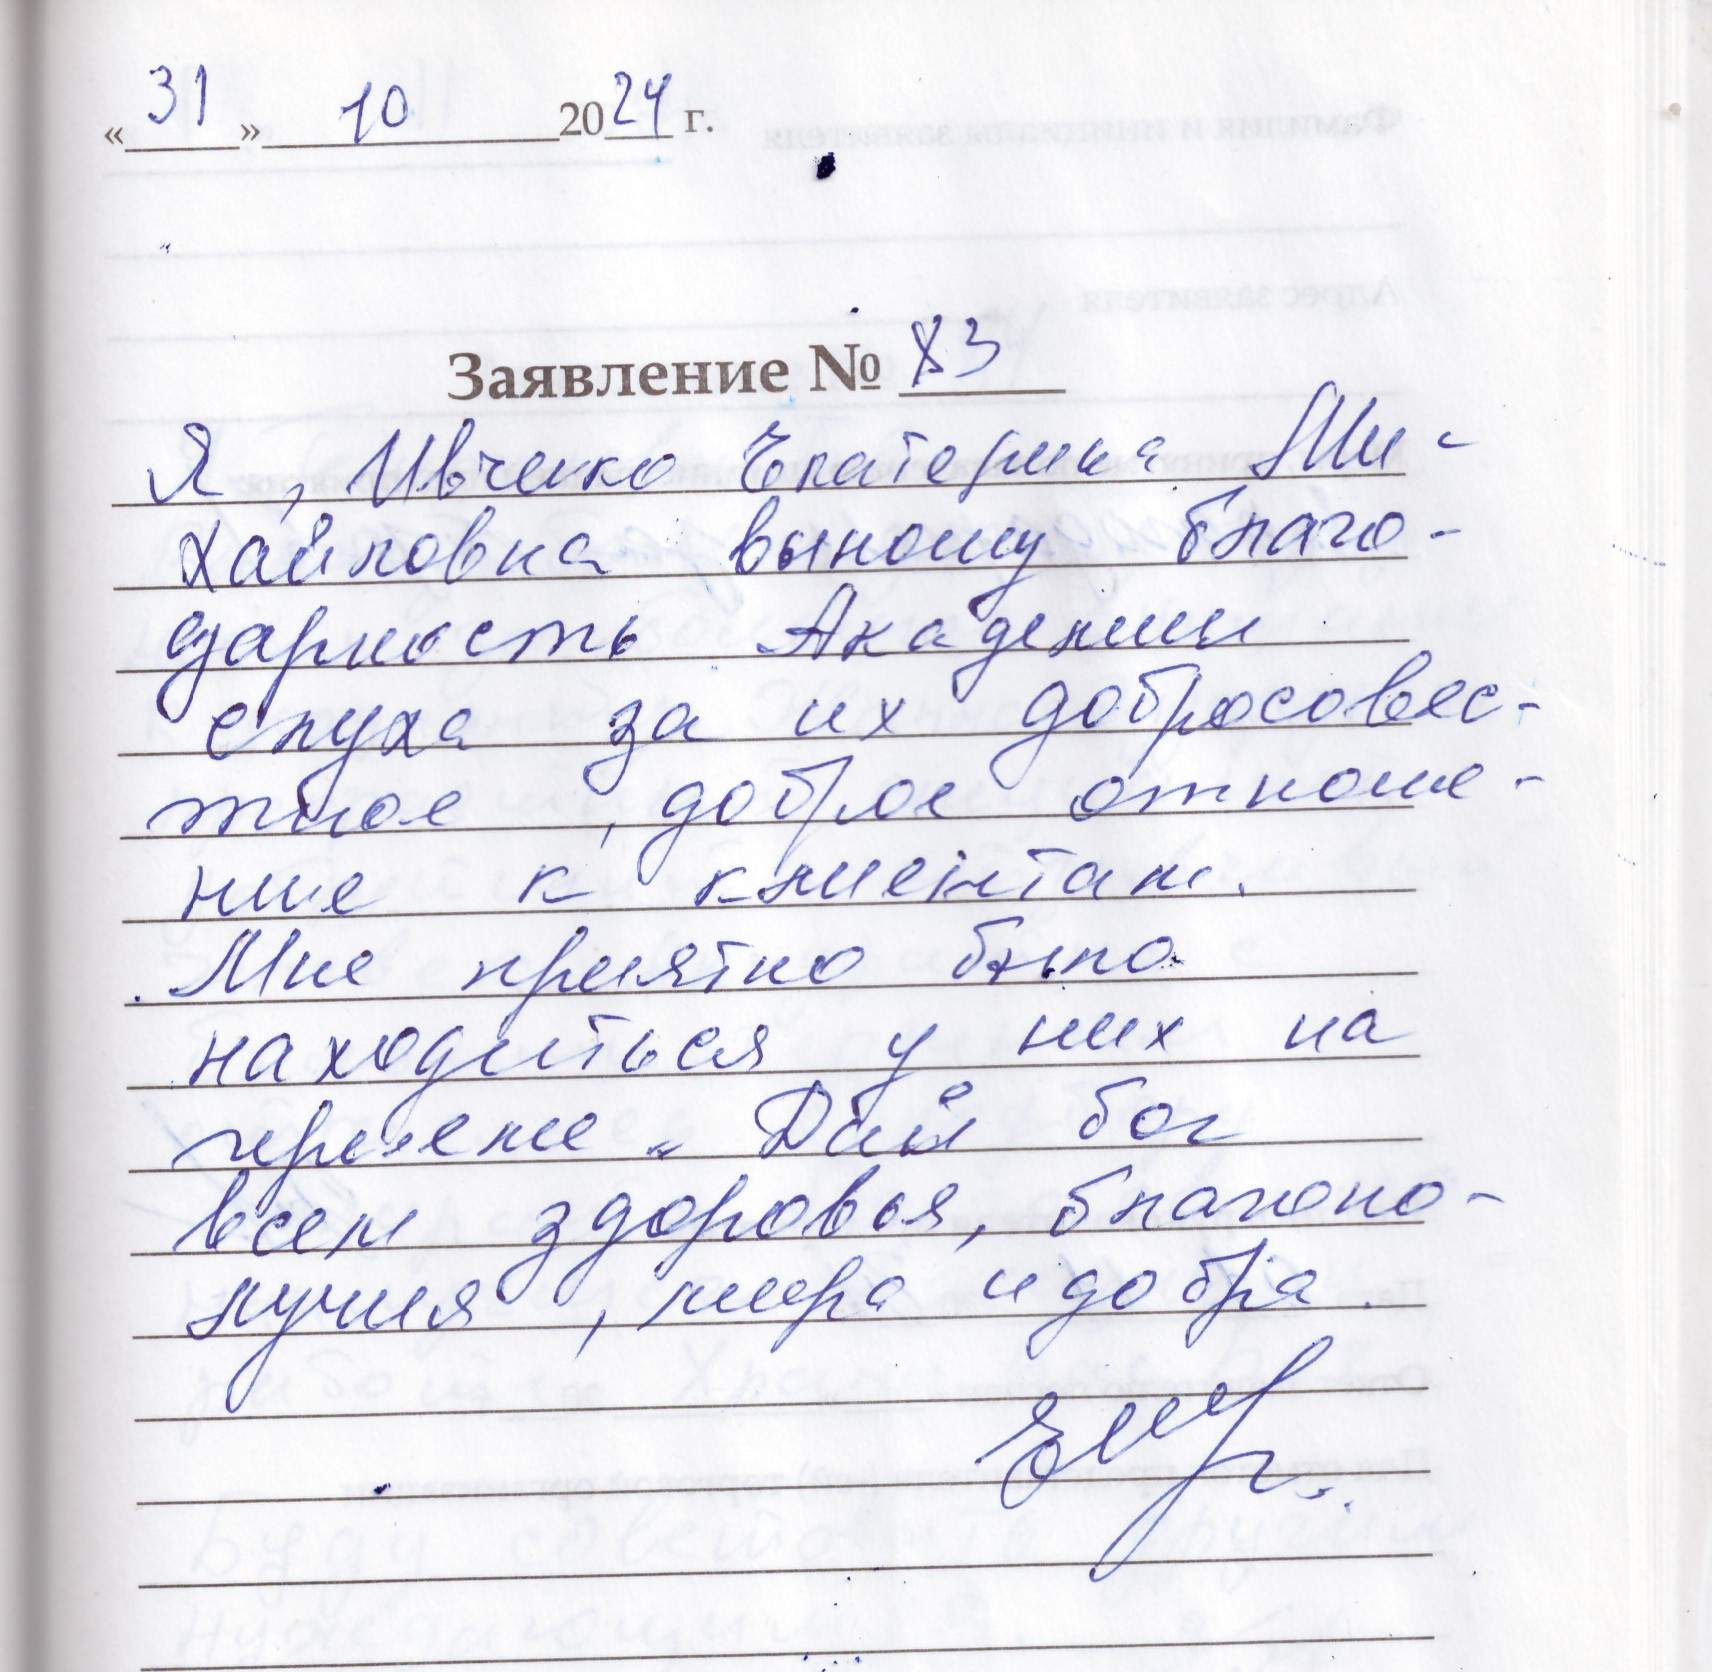 «31» 10 2024 г.
Заявление № 83
Я, Ивченко Екатерина Ми-
хайловна выношу благо-
дарность Академии
слуха за их добросовес-
тное, доброе отноше-
ние к клиентам.
Мне приятно было
находиться у них на
приеме. Дай бог
всем здоровья, благопо-
лучия, мира и добра.